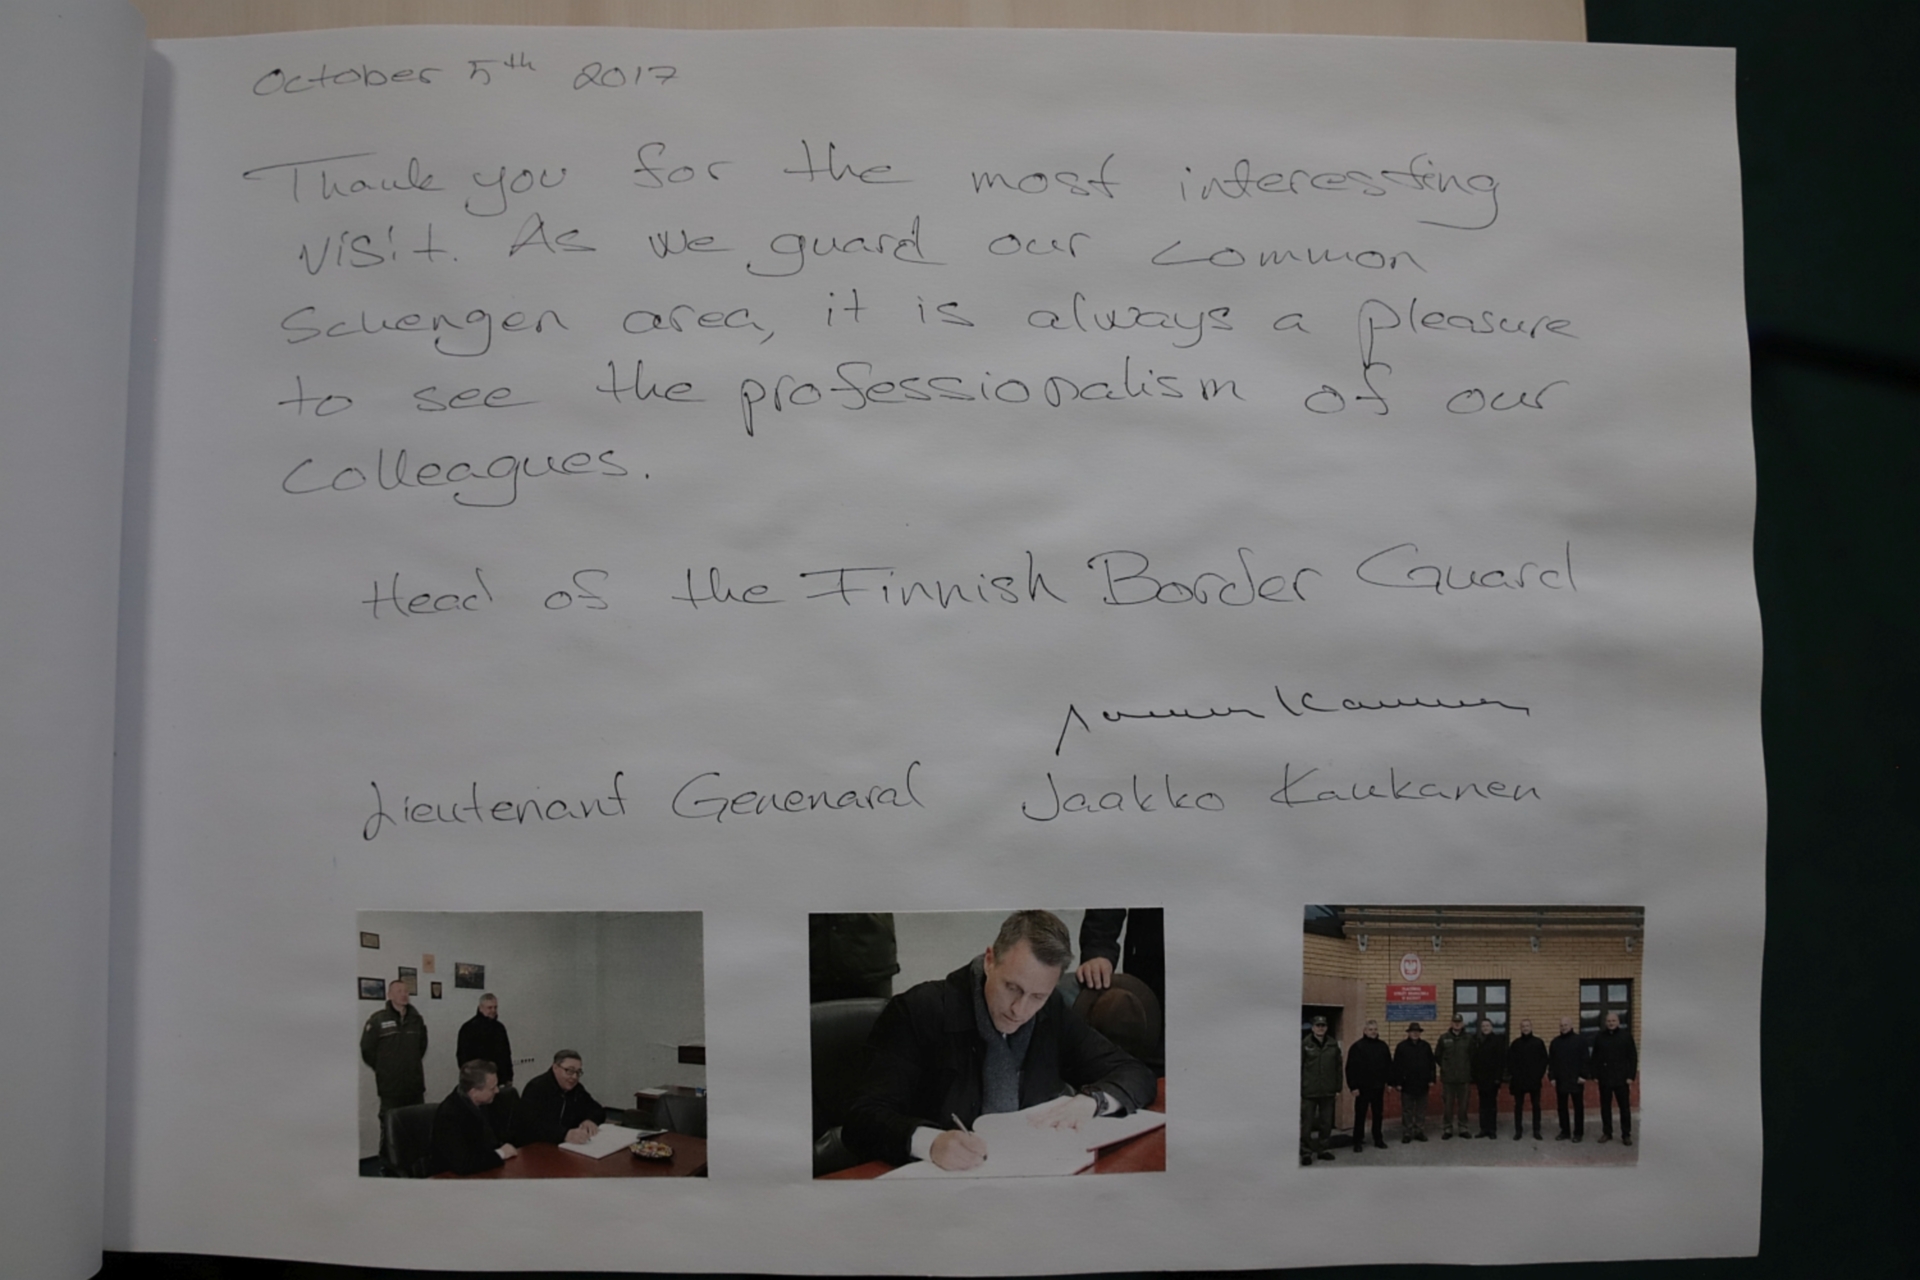 October 5th 2017
Thank you for the most interesting
visit. As we guard our common
Schengen area, it is always a pleasure
to see the professionalism of our
colleagues.
Head of the Finnish Border Guard
Lieutenant Genenaral Jaakko Kaukanen